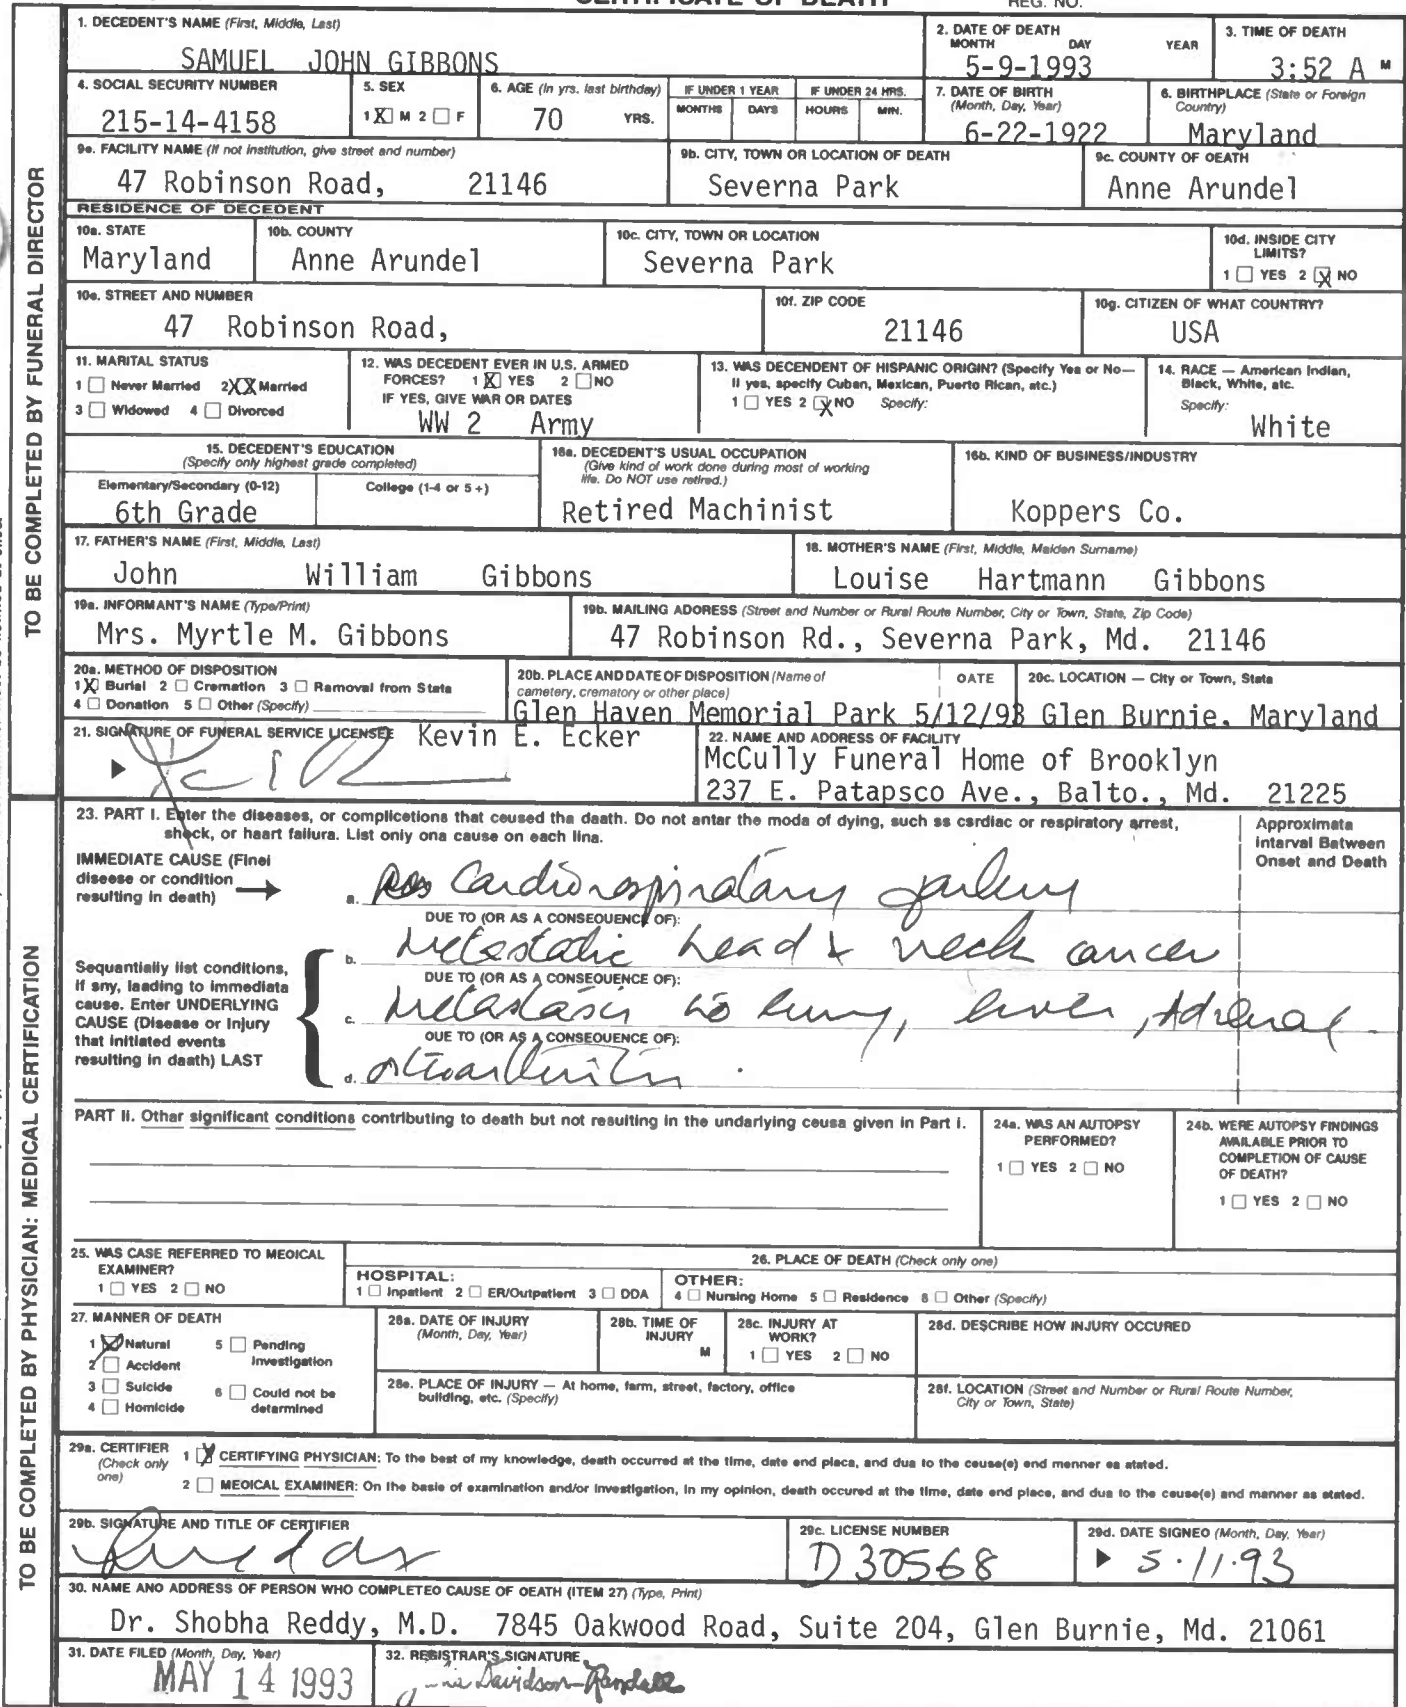 CERTIFICATE OF DEATH REG. NO.
1. DECEDENT'S NAME (First, Middle, Last)
SAMUEL JOHN GIBBONS
2. DATE OF DEATH
MONTH DAY YEAR
5-9-1993
3. TIME OF DEATH
3:52 A M
4. SOCIAL SECURITY NUMBER
215-14-4158
5. SEX
1 X M 2 F
6. AGE (In yrs. last birthday)
70 YRS.
IF UNDER 1 YEAR
MONTHS DAYS
IF UNDER 24 HRS.
HOURS MIN.
7. DATE OF BIRTH
(Month, Day, Year)
6-22-1922
6. BIRTHPLACE (State or Foreign
Country)
Maryland
9e. FACILITY NAME (If not institution, give street and number)
47 Robinson Road, 21146
9b. CITY, TOWN OR LOCATION OF DEATH
Severna Park
9c. COUNTY OF DEATH
Anne Arundel
RESIDENCE OF DECEDENT
10a. STATE
Maryland
10b. COUNTY
Anne Arundel
10c. CITY, TOWN OR LOCATION
Severna Park
10d. INSIDE CITY
LIMITS?
1 YES 2 X NO
10e. STREET AND NUMBER
47 Robinson Road,
10f. ZIP CODE
21146
10g. CITIZEN OF WHAT COUNTRY?
USA
11. MARITAL STATUS
1 Never Married 2 XX Married
3 Widowed 4 Divorced
12. WAS DECEDENT EVER IN U.S. ARMED
FORCES? 1 X YES 2 NO
IF YES, GIVE WAR OR DATES
WW 2 Army
13. WAS DECENDENT OF HISPANIC ORIGIN? (Specify Yes or No—
If yes, specify Cuban, Mexican, Puerto Rican, etc.)
1 YES 2 X NO Specify:
14. RACE — American Indian,
Black, White, etc.
Specify:
White
15. DECEDENT'S EDUCATION
(Specify only highest grade completed)
Elementary/Secondary (0-12) College (1-4 or 5+)
6th Grade
16a. DECEDENT'S USUAL OCCUPATION
(Give kind of work done during most of working
life. Do NOT use retired.)
Retired Machinist
16b. KIND OF BUSINESS/INDUSTRY
Koppers Co.
17. FATHER'S NAME (First, Middle, Last)
John William Gibbons
18. MOTHER'S NAME (First, Middle, Maiden Surname)
Louise Hartmann Gibbons
19a. INFORMANT'S NAME (Type/Print)
Mrs. Myrtle M. Gibbons
19b. MAILING ADDRESS (Street and Number or Rural Route Number, City or Town, State, Zip Code)
47 Robinson Rd., Severna Park, Md. 21146
20a. METHOD OF DISPOSITION
1 X Burial 2 Cremation 3 Removal from State
4 Donation 5 Other (Specify)
20b. PLACE AND DATE OF DISPOSITION (Name of
cemetery, crematory or other place)
DATE
20c. LOCATION — City or Town, State
Glen Haven Memorial Park 5/12/93 Glen Burnie, Maryland
21. SIGNATURE OF FUNERAL SERVICE LICENSEE Kevin E. Ecker
22. NAME AND ADDRESS OF FACILITY
McCully Funeral Home of Brooklyn
237 E. Patapsco Ave., Balto., Md. 21225
TO BE COMPLETED BY FUNERAL DIRECTOR
23. PART I. Enter the diseases, or complications that caused the death. Do not enter the mode of dying, such as cardiac or respiratory arrest,
shock, or heart failure. List only one cause on each line.
Approximate
Interval Between
Onset and Death
IMMEDIATE CAUSE (Final
disease or condition
resulting in death)
a. Cardiorespiratory failure
DUE TO (OR AS A CONSEQUENCE OF):
b. Metastatic head & neck cancer
DUE TO (OR AS A CONSEQUENCE OF):
c. Metastasis to lung, liver, Adrenal
DUE TO (OR AS A CONSEQUENCE OF):
d.
Sequentially list conditions,
if any, leading to immediate
cause. Enter UNDERLYING
CAUSE (Disease or Injury
that initiated events
resulting in death) LAST
PART II. Other significant conditions contributing to death but not resulting in the underlying cause given in Part I.
24a. WAS AN AUTOPSY
PERFORMED?
1 YES 2 NO
24b. WERE AUTOPSY FINDINGS
AVAILABLE PRIOR TO
COMPLETION OF CAUSE
OF DEATH?
1 YES 2 NO
25. WAS CASE REFERRED TO MEDICAL
EXAMINER?
1 YES 2 NO
26. PLACE OF DEATH (Check only one)
HOSPITAL:
1 Inpatient 2 ER/Outpatient 3 DOA
OTHER:
4 Nursing Home 5 Residence 6 Other (Specify)
27. MANNER OF DEATH
1 X Natural 5 Pending
2 Accident Investigation
3 Suicide 6 Could not be
4 Homicide determined
28a. DATE OF INJURY
(Month, Day, Year)
28b. TIME OF
INJURY
M
28c. INJURY AT
WORK?
1 YES 2 NO
28d. DESCRIBE HOW INJURY OCCURED
28e. PLACE OF INJURY — At home, farm, street, factory, office
building, etc. (Specify)
28f. LOCATION (Street and Number or Rural Route Number,
City or Town, State)
29a. CERTIFIER
(Check only
one)
1 X CERTIFYING PHYSICIAN: To the best of my knowledge, death occurred at the time, date end place, and due to the cause(e) end manner as stated.
2 MEDICAL EXAMINER: On the basis of examination and/or investigation, in my opinion, death occured at the time, date end place, and due to the cause(e) and manner as stated.
29b. SIGNATURE AND TITLE OF CERTIFIER
29c. LICENSE NUMBER
D 30568
29d. DATE SIGNED (Month, Day, Year)
5.11.93
30. NAME AND ADDRESS OF PERSON WHO COMPLETED CAUSE OF DEATH (ITEM 27) (Type, Print)
Dr. Shobha Reddy, M.D. 7845 Oakwood Road, Suite 204, Glen Burnie, Md. 21061
31. DATE FILED (Month, Day, Year)
MAY 14 1993
32. REGISTRAR'S SIGNATURE
Davidson-Randall
TO BE COMPLETED BY PHYSICIAN: MEDICAL CERTIFICATION